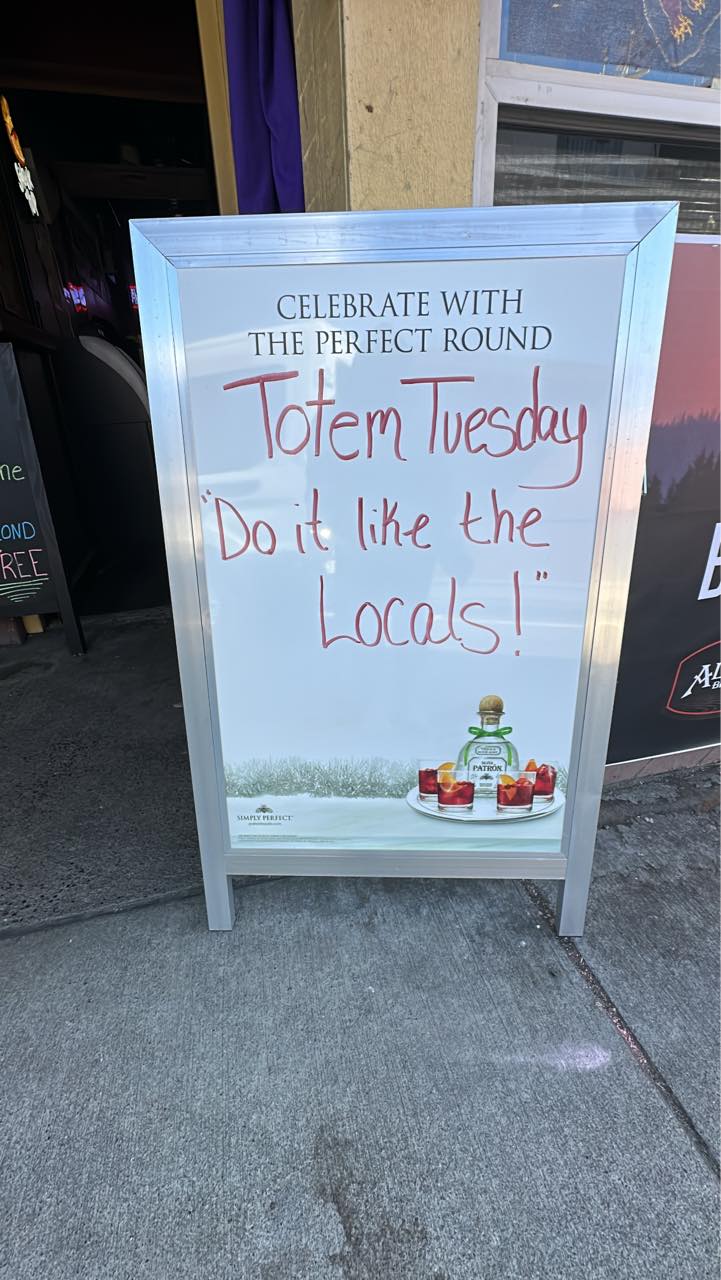 CELEBRATE WITH
THE PERFECT ROUND
Totem Tuesday
"Do it like the
Locals!"
PATRÓN
SIMPLY PERFECT.
FREE